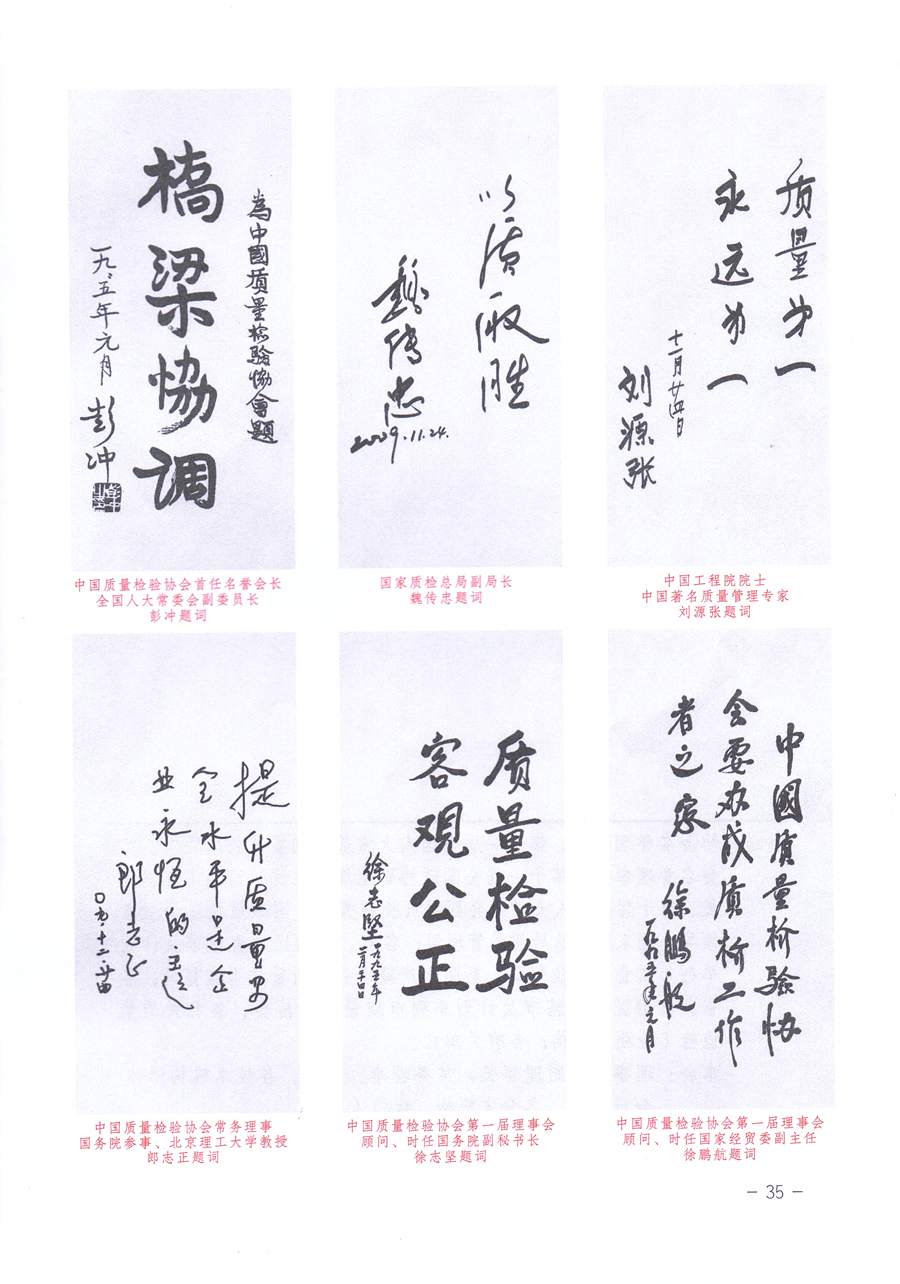 为中國质量检验协會題
橋梁协调
一九九五年元月 彭冲
中国质量检验协会首任名誉会长
全国人大常委会副委员长
彭冲题词
以质取胜
魏传忠
2009.11.24.
国家质检总局副局长
魏传忠题词
质量第一
永远第一
十一月廿四日
刘源张
中国工程院院士
中国著名质量管理专家
刘源张题词
提升质量安
全水平是企
业永恒的主题
郎志正
〇九.十一.廿四
中国质量检验协会常务理事
国务院参事、北京理工大学教授
郎志正题词
质量检验
客观公正
徐志坚
一九九五年
中国质量检验协会第一届理事会
顾问、时任国务院副秘书长
徐志坚题词
中國质量检验协
会要办成质检工作
者之家
徐鹏航
元月
中国质量检验协会第一届理事会
顾问、时任国家经贸委副主任
徐鹏航题词
- 35 -